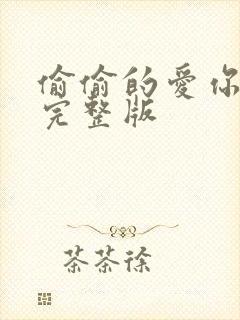 偷偷的爱你
完整版
茶茶徐